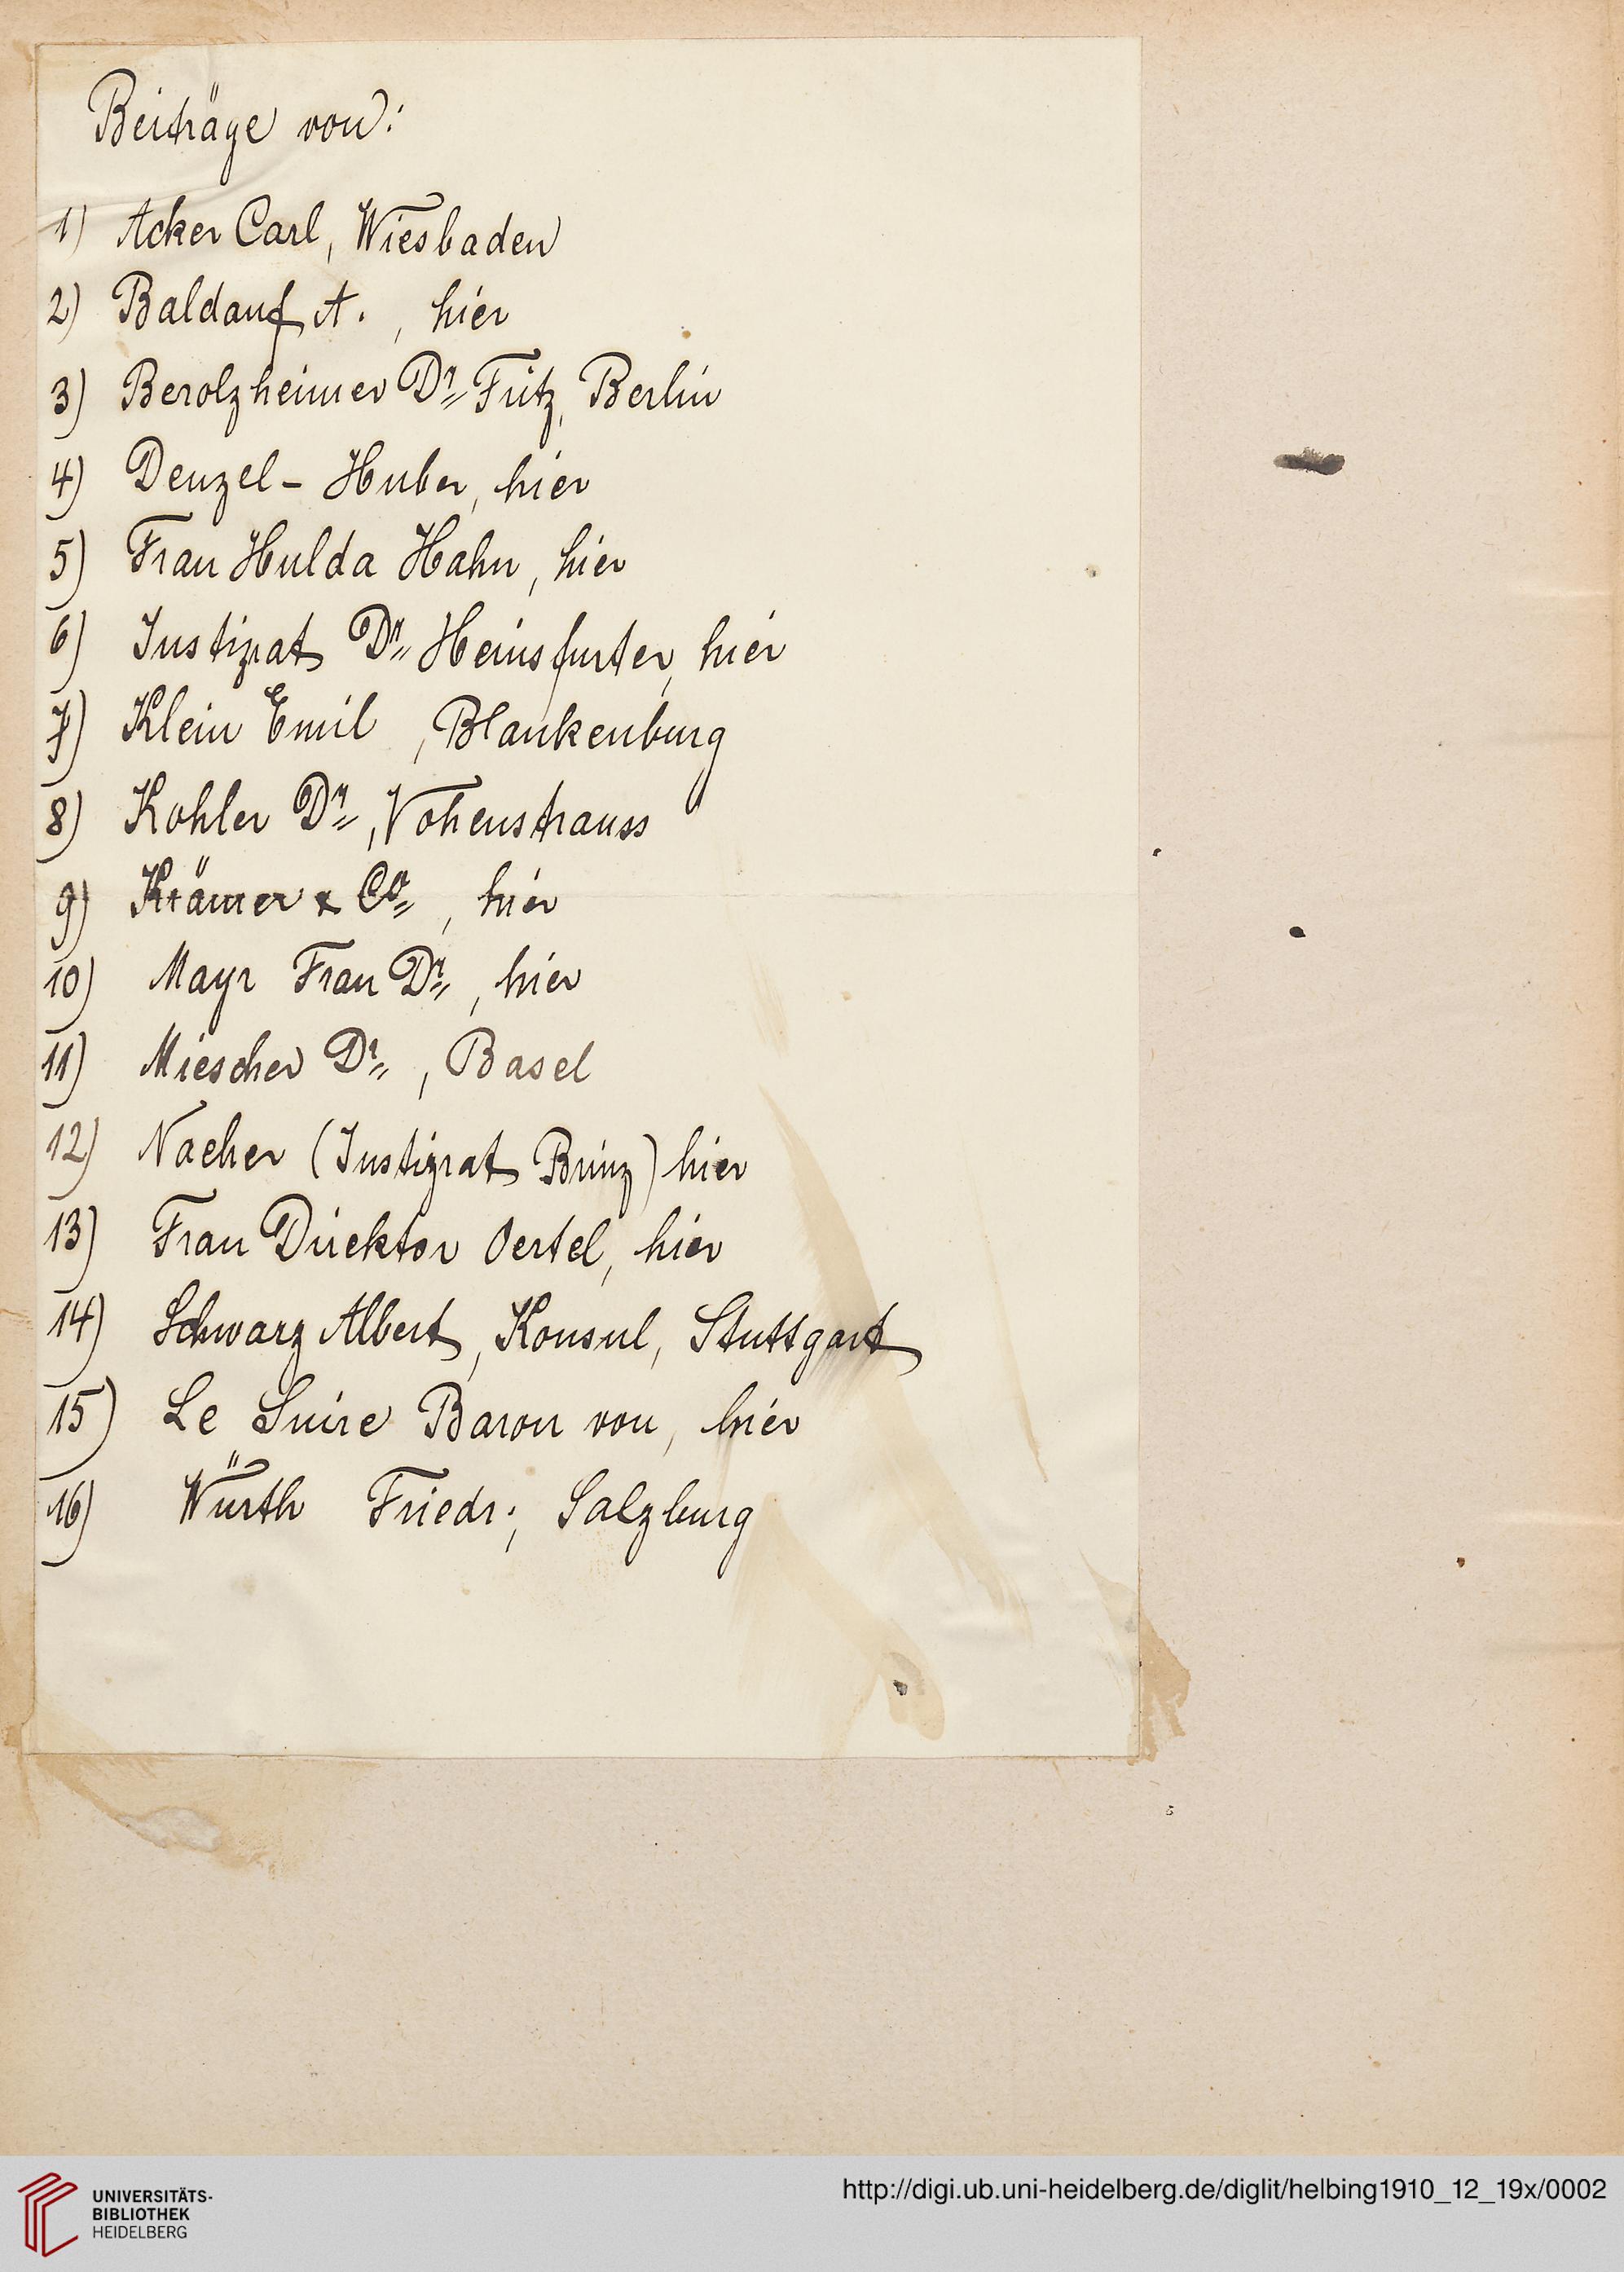 Beiträge von:
1) Acker Carl, Wiesbaden
2) Baldauf A. , hier
3) Berolzheimer Dr. Fritz, Berlin
4) Denzel - Huber, hier
5) Frau Hulda Hahn, hier
6) Justizrat Dr. Heinsfurter, hier
7) Klein Emil , Blankenburg
8) Kohler Dr. , Vohenstrauss
9) Krämer & Co. , hier
10) Mayr Frau Dr. , hier
11) Miescher Dr. , Basel
12) Nacher (Justizrat Brinz) hier
13) Frau Direktor Oertel, hier
14) Schwarz Albert, Konsul, Stuttgart
15) Le Suire Baron von, hier
16) Würth Friedr., Salzburg
UNIVERSITÄTS-
BIBLIOTHEK
HEIDELBERG
http://digi.ub.uni-heidelberg.de/diglit/helbing1910_12_19x/0002